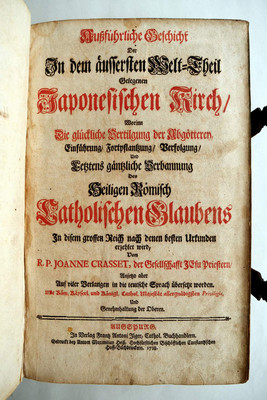 Außführliche Geschicht
Der
In dem äussersten Welt-Theil
Gelegenen
Japonesischen Kirch/
Worinn
Die glückliche Vertilgung der Abgötterey,
Einführung/ Fortpflantzung/ Verfolgung/
Und
Letztens gäntzliche Verbannung
Des
Heiligen Römisch
Catholischen Glaubens
In disem grossen Reich nach denen besten Urkunden
erzehlet wird/
Von
R. P. JOANNE CRASSET, der Gesellschafft JEsu Priestern/
Anjetzo aber
Auf viler Verlangen in die teutsche Sprach übersetzt worden.
Mit Röm. Käyserl. und Königl. Cathol. Majestät allergnädigsten Privilegio,
Und
Genehmhaltung der Oberen.
AUGSPURG,
In Verlag Frantz Antoni Jlger, Cathol. Buchhandlern.
Gedruckt bey Antoni Maximilian Heiß, Hochfürstlichen Bischöfflichen Constantzischen
Hoff-Buchdruckern. 1738.